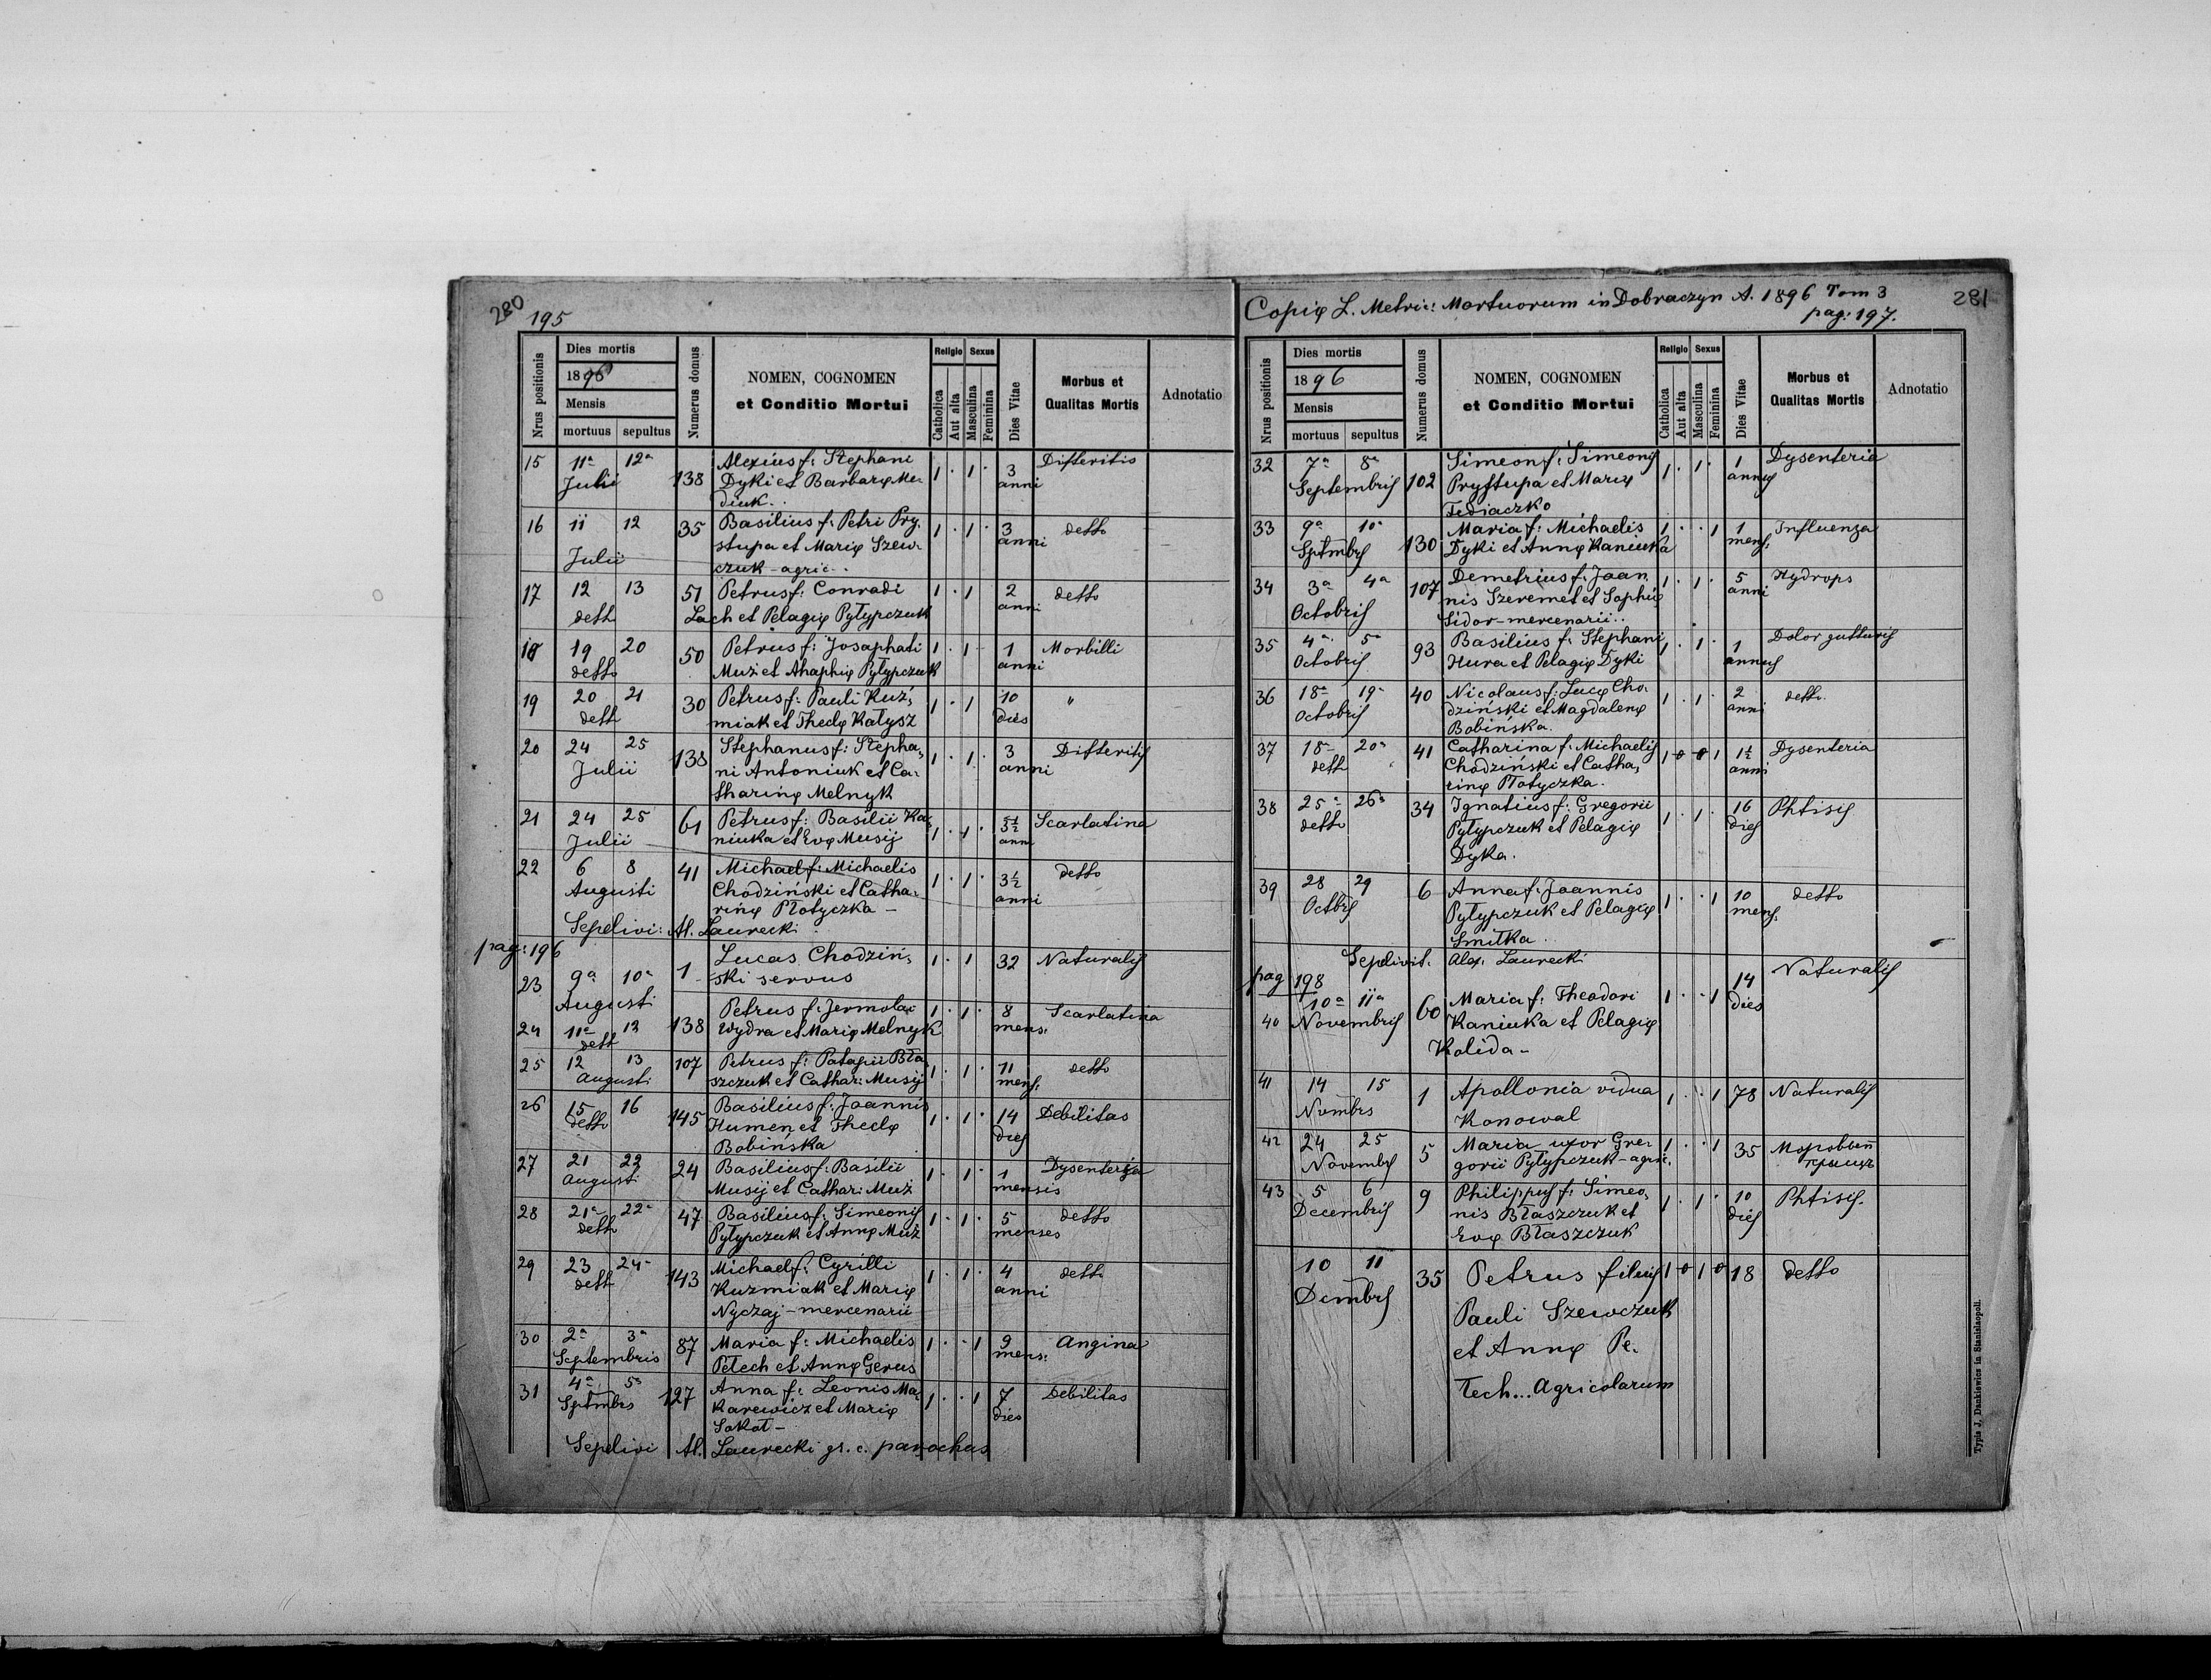 280
195
Nrus positionis
Dies mortis
1896
Mensis
mortuus sepultus
Numerus domus
NOMEN, COGNOMEN
et Conditio Mortui
Religio Sexus
Catholica Aut alta Masculina Feminina
Dies Vitae
Morbus et
Qualitas Mortis
Adnotatio
15 11a 12a Alexius f: Stephani Difteritis
Julii 138 Dyki et Barbarę Me- 1 · 1 · 3 anni
diuk.
16 11 12 35 Basilius f: Petri Pry- 1 · 1 · 3 anni detto
stupa et Marię Szew-
Julii czuk - agric.
17 12 13 51 Petrus f: Conradi 1 · 1 2 anni detto
detto Lach et Pelagię Pyłypczuk
18 19 20 50 Petrus f: Josaphati 1 · 1 · 1 anni Morbilli
detto Muż et Ahaphię Pyłypczuk
19 20 21 30 Petrus f: Pauli Kuź- 1 · 1 10 dies "
detto miak et Theclę Kałysz
20 24 25 138 Stephanus f: Stepha- 1 · 1 · 3 anni Difteritis
Julii ni Antoniuk et Ca-
tharinę Melnyk
21 24 25 61 Petrus f: Basilii Ka- 1 · 1 · anni Scarlatina
Julii niuka et Evę Musij
22 6 8 41 Michael f: Michaelis 1 · 1 · 3½ anni detto
Augusti Chodziński et Catha-
rinę Płotyczka -
Sepelivi: Al. Laurecki
pag: 196
23 9a 10a 1 Lucas Chodziń- 1 · 1 32 Naturalis
Augusti ski servus
24 11a 12 138 Petrus f: Jermolai 1 · 1 · 8 mens: Scarlatina
detto Wydra et Marię Melnyk
25 12 13 107 Petrus f: Patapii Bła- 1 · 1 · 11 mens: detto
Augusti szczuk et Cathar: Musij
26 15 16 145 Basilius f: Joannis 1 · 1 · 14 dies Debilitas
detto Humen et Theclę
Bobińska
27 21 22 24 Basilius f: Basilii 1 · 1 · 1 mensis Dysenterja
Augusti Musij et Cathar: Muż
28 21a 22a 47 Basilius f: Simeonis 1 · 1 · 5 menses detto
detto Pyłypczuk et Annę Muż
29 23 24 143 Michael f: Cyrilli 1 · 1 · 4 anni detto
detto Kuzmiak et Marię
Nyczaj - mercenarii
30 2a 3a 87 Maria f: Michaelis 1 · · 1 9 mens: Angina
Septembris Petech et Annę Gerus
31 4a 5a 127 Anna f: Leonis Ma- 1 · · 1 7 dies Debilitas
Sptmbrs karewicz et Marię
Sokoł -
Sepelivi Al. Laurecki gr. c. parochus
Copię L. Metric: Mortuorum in Dobraczyn A. 1896 Tom 3
pag: 197.
281
Nrus positionis
Dies mortis
1896
Mensis
mortuus sepultus
Numerus domus
NOMEN, COGNOMEN
et Conditio Mortui
Religio Sexus
Catholica Aut alta Masculina Feminina
Dies Vitae
Morbus et
Qualitas Mortis
Adnotatio
32 7a 8a Simeon f: Simeonis Dysenteria
Septembris 102 Prystupa et Marię 1 · 1 · 1 annus
Fediaczko
33 9a 10a 130 Maria f: Michaelis 1 · · 1 1 mens: Influenza
Sptmbrs Dyki et Annę Kaniuka
34 3a 4a 107 Demetrius f: Joan- 1 · 1 · 5 anni Hydrops
Octobris nis Szeremet et Sophię
Sidor - mercenarii..
35 4a 5a 93 Basilius f: Stephani 1 · 1 · 1 annus Dolor gutturis
Octobris Hura et Pelagię Dyki
36 18a 19a 40 Nicolaus f: Lucę Cho- 1 · 1 · 2 anni detto
Octobris dziński et Magdalenę
Bobińska.
37 18a 20a 41 Catharina f: Michaelis 1 0 0 1 1½ anni Dysenteria
detto Chodziński et Catha-
rinę Płotyczka.
38 25a 26a 34 Ignatius f: Gregorii 1 · 1 · 16 dies Phtisis
detto Pyłypczuk et Pelagię
Dyka.
39 28 29 6 Anna f: Joannis 1 · · 1 10 mens. detto
Octbris Pyłypczuk et Pelagię
Smitka.
Sepelivit. Alex. Laurecki
pag 198
40 10a 11a 60 Maria f: Theodori 1 · · 1 14 dies Naturalis
Novembris Kaniuka et Pelagię
Kolida -
41 14 15 1 Apollonia vidua 1 · · 1 78 Naturalis
Nvmbrs Konowal
42 24 25 5 Maria uxor Gre- 1 · · 1 35
Novembrs gorii Pyłypczuk - agric.
43 5 6 9 Philippus f: Simeo- 1 · 1 · 10 dies Phtisis.
Decembris nis Błaszczuk et
Evę Błaszczuk
10 11 35 Petrus filius 1 0 1 0 18 detto
Dcmbrs Pauli Szewczuk
et Annę Pe-
tech... Agricolarum
Typis J. Dankiewicz in Stanislaopoli.